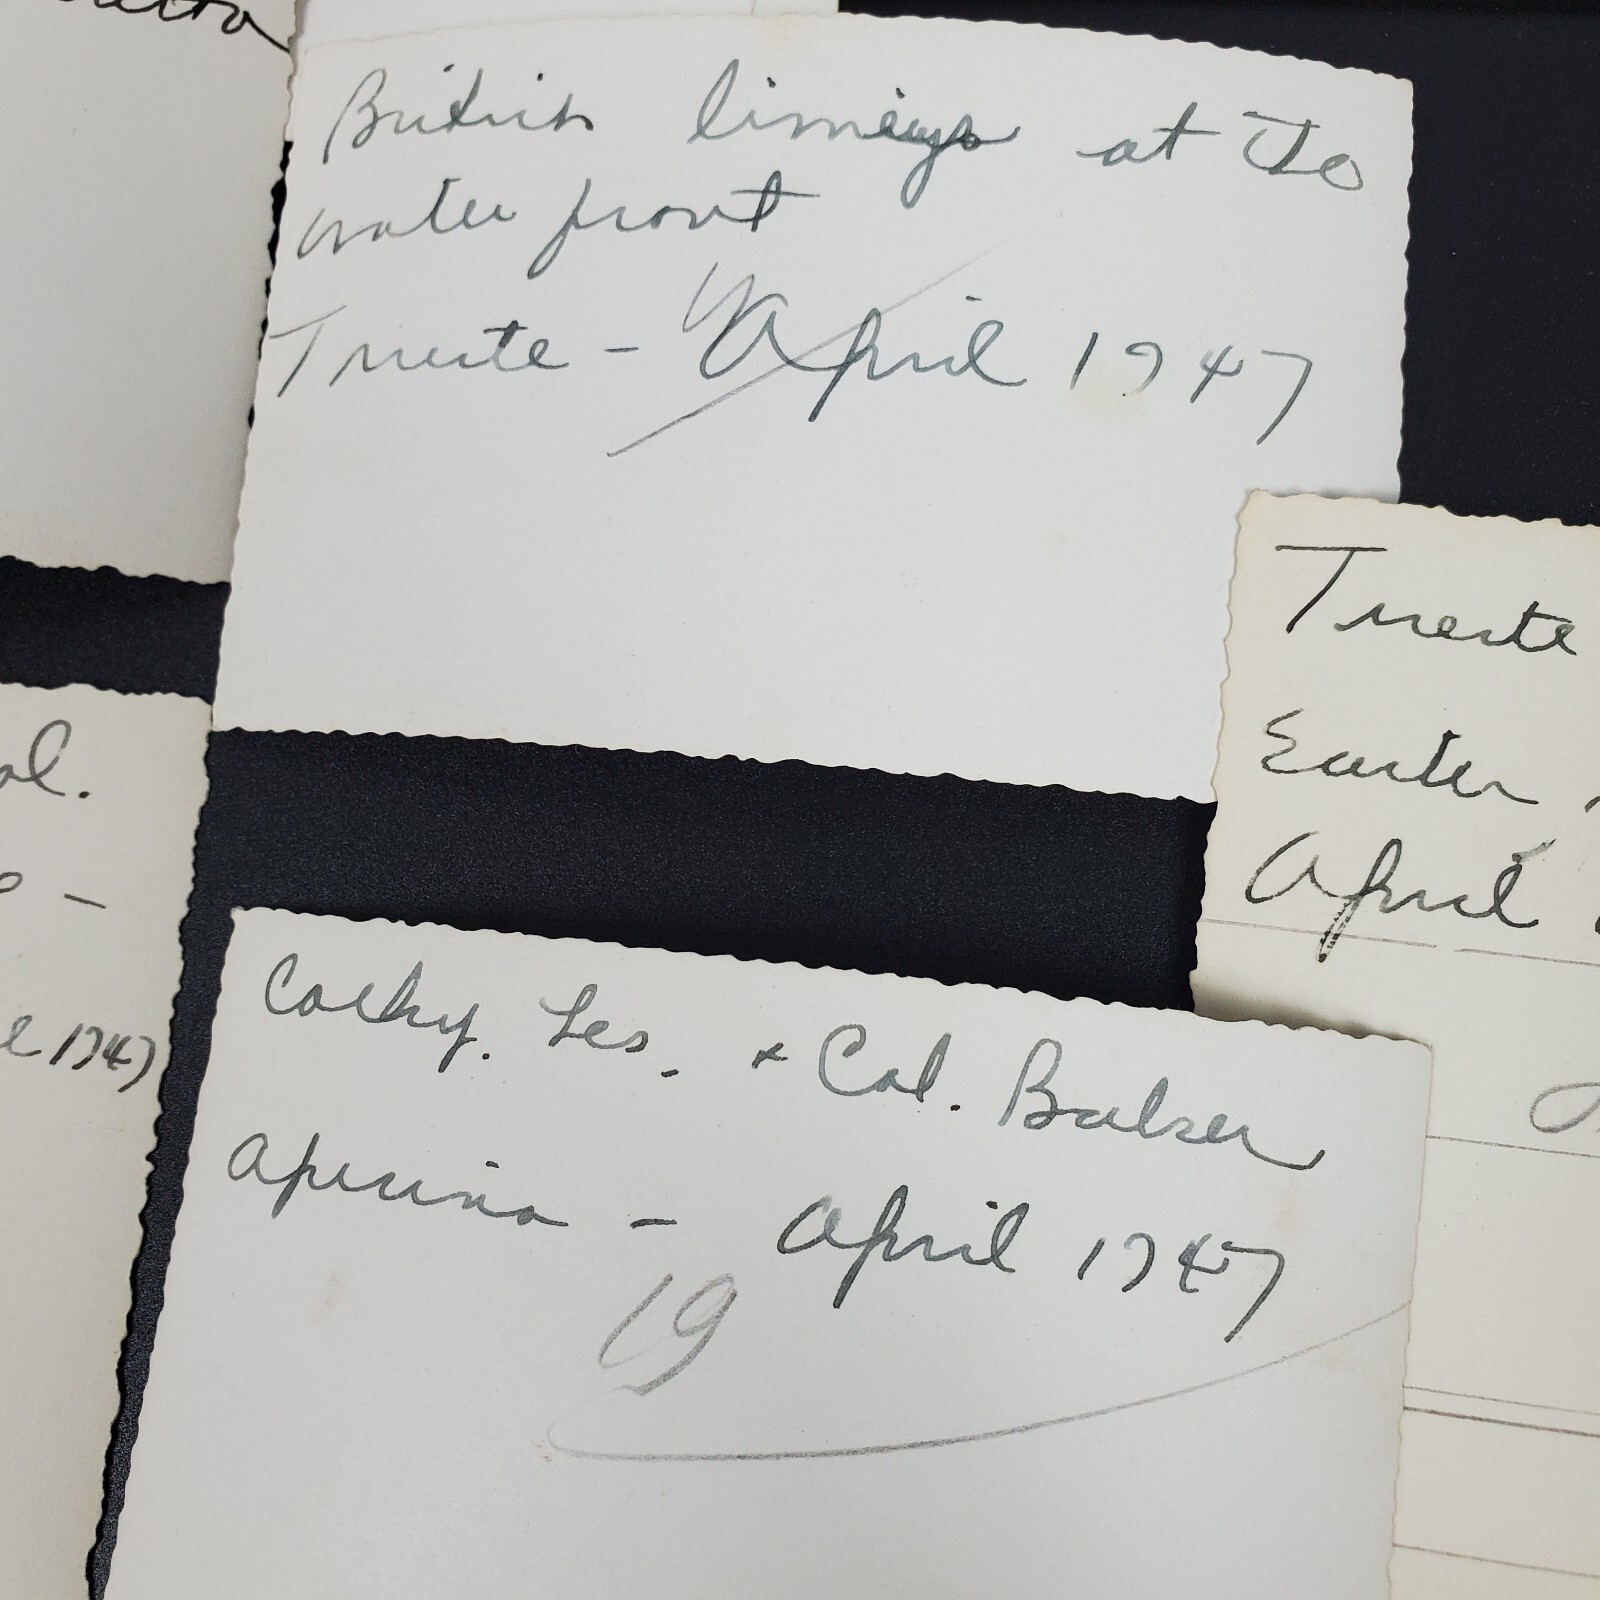 British limeys at the
water front
Trieste - April 1947
Trieste
Easter
April
al.
e 1947
Cathy. Les. + Col. Balzer
- April 1947
19